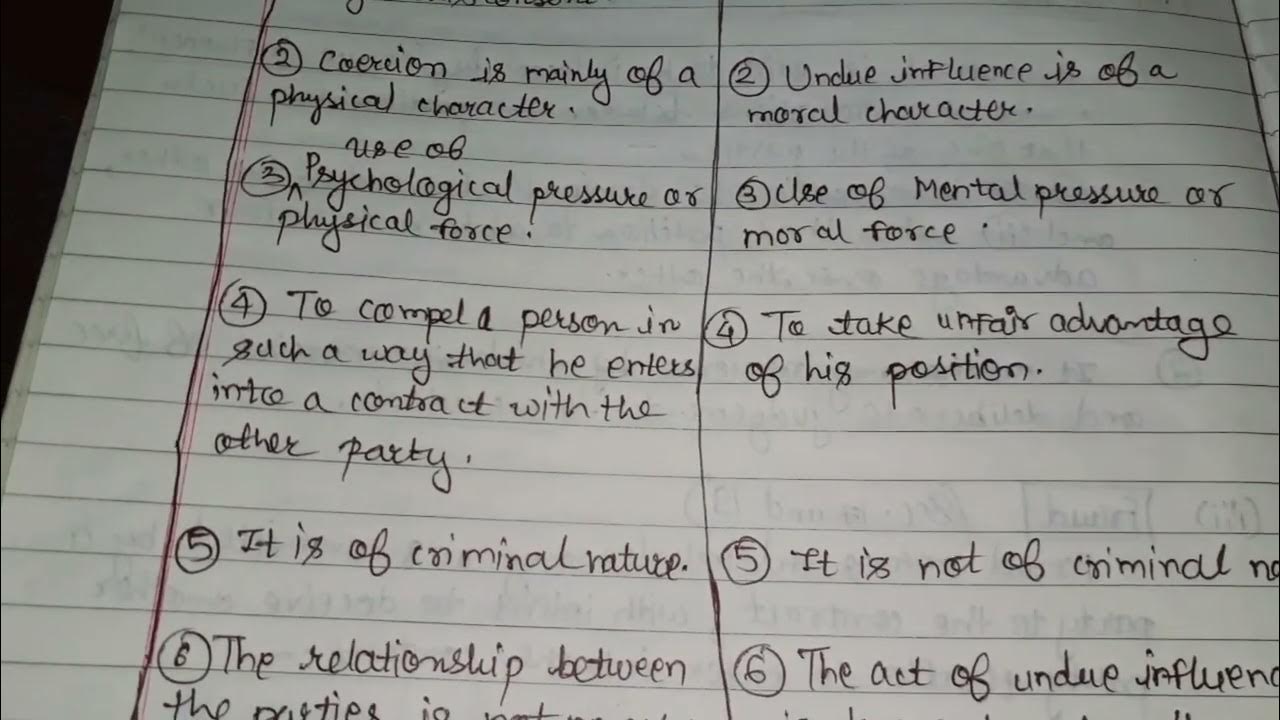 ② Coercion is mainly of a
physical character.
use of
③ ^ Psychological pressure or
physical force.
④ To compel a person in
such a way that he enters
into a contract with the
other party.
⑤ It is of criminal nature.
⑥ The relationship between
the parties is not
② Undue influence is of a
moral character.
③ Use of Mental pressure or
moral force.
④ To take unfair advantage
of his position.
⑤ It is not of criminal na
⑥ The act of undue influenc